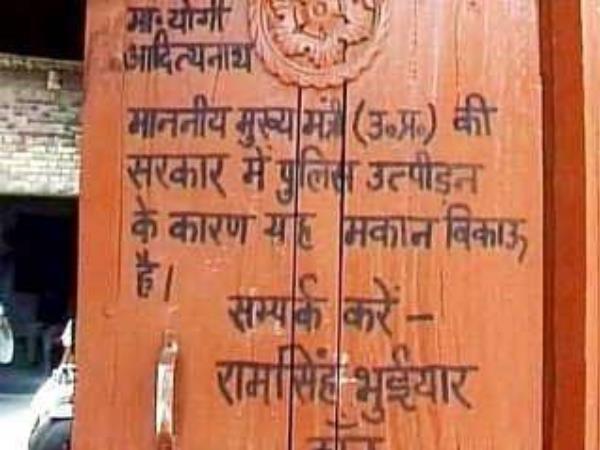 मा. योगी
आदित्यनाथ
माननीय मुख्य मंत्री (उ॰प्र॰) की
सरकार में पुलिस उत्पीड़न
के कारण यह मकान बिकाऊ
है।
सम्पर्क करें –
रामसिंह भुईयार